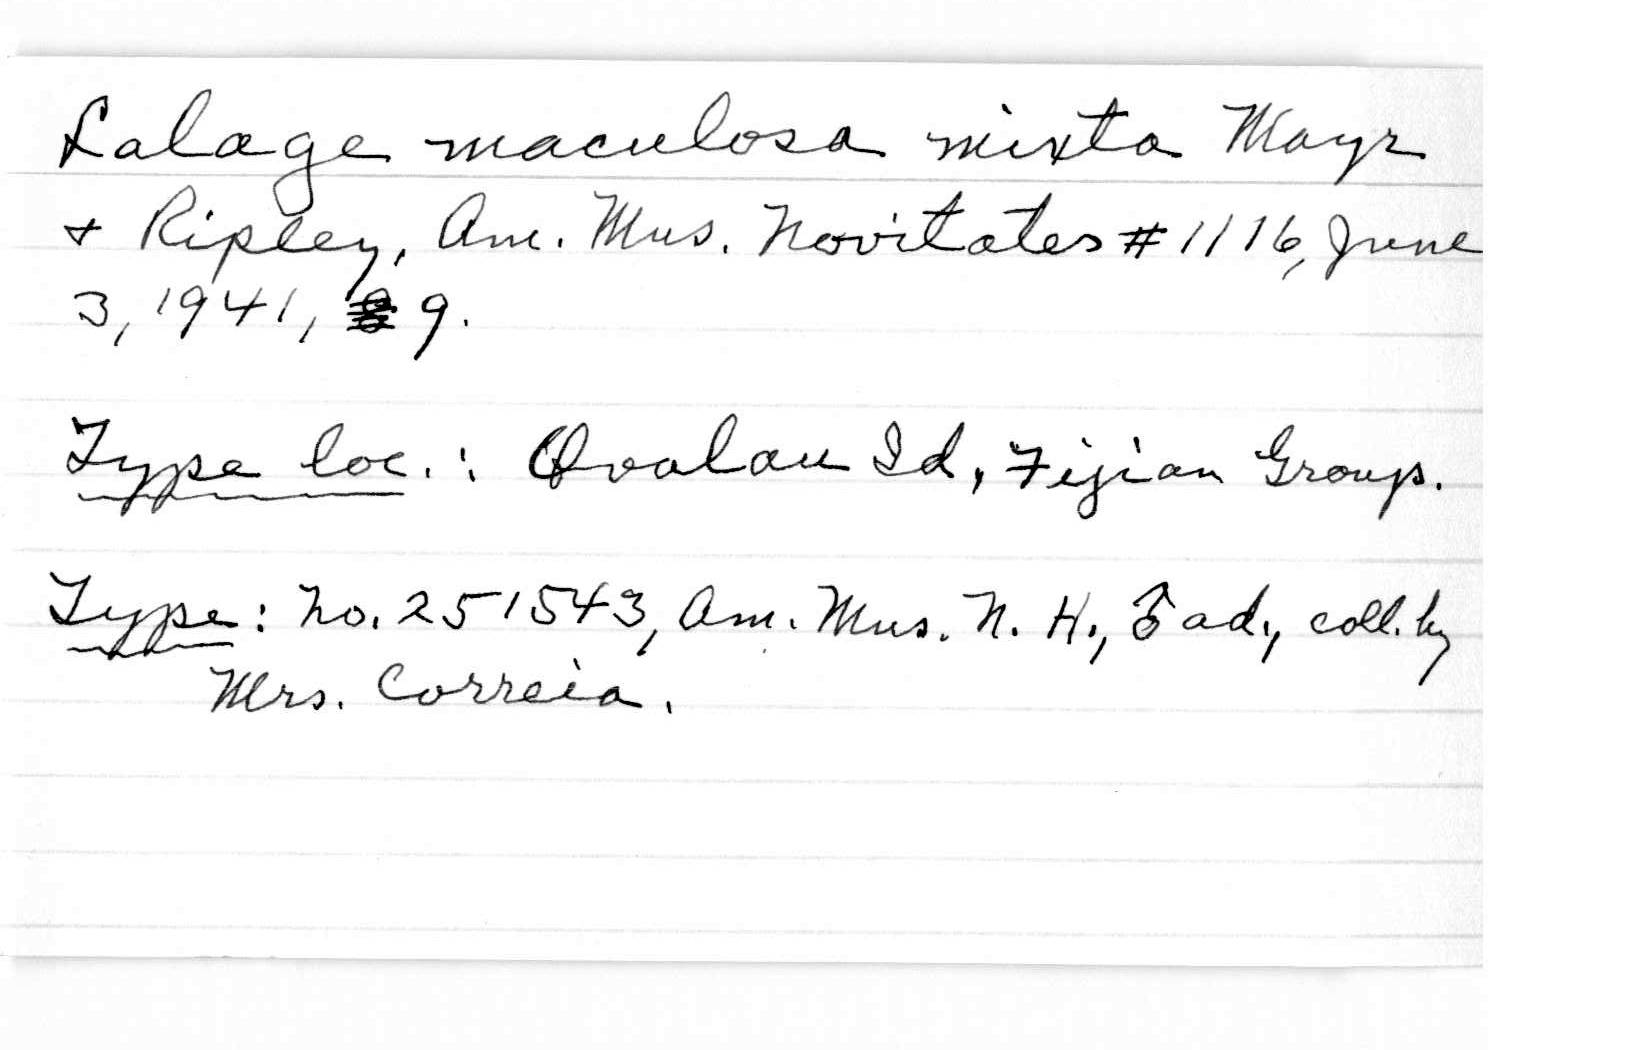 Lalage maculosa mixta Mayr
+ Ripley, Am. Mus. Novitates #1116, June
3, 1941, 9.
Type loc.: Ovalau Id, Fijian Group.
Type: No. 251543, Am. Mus. N. H., ♂ ad., coll. by
Mrs. Correia.